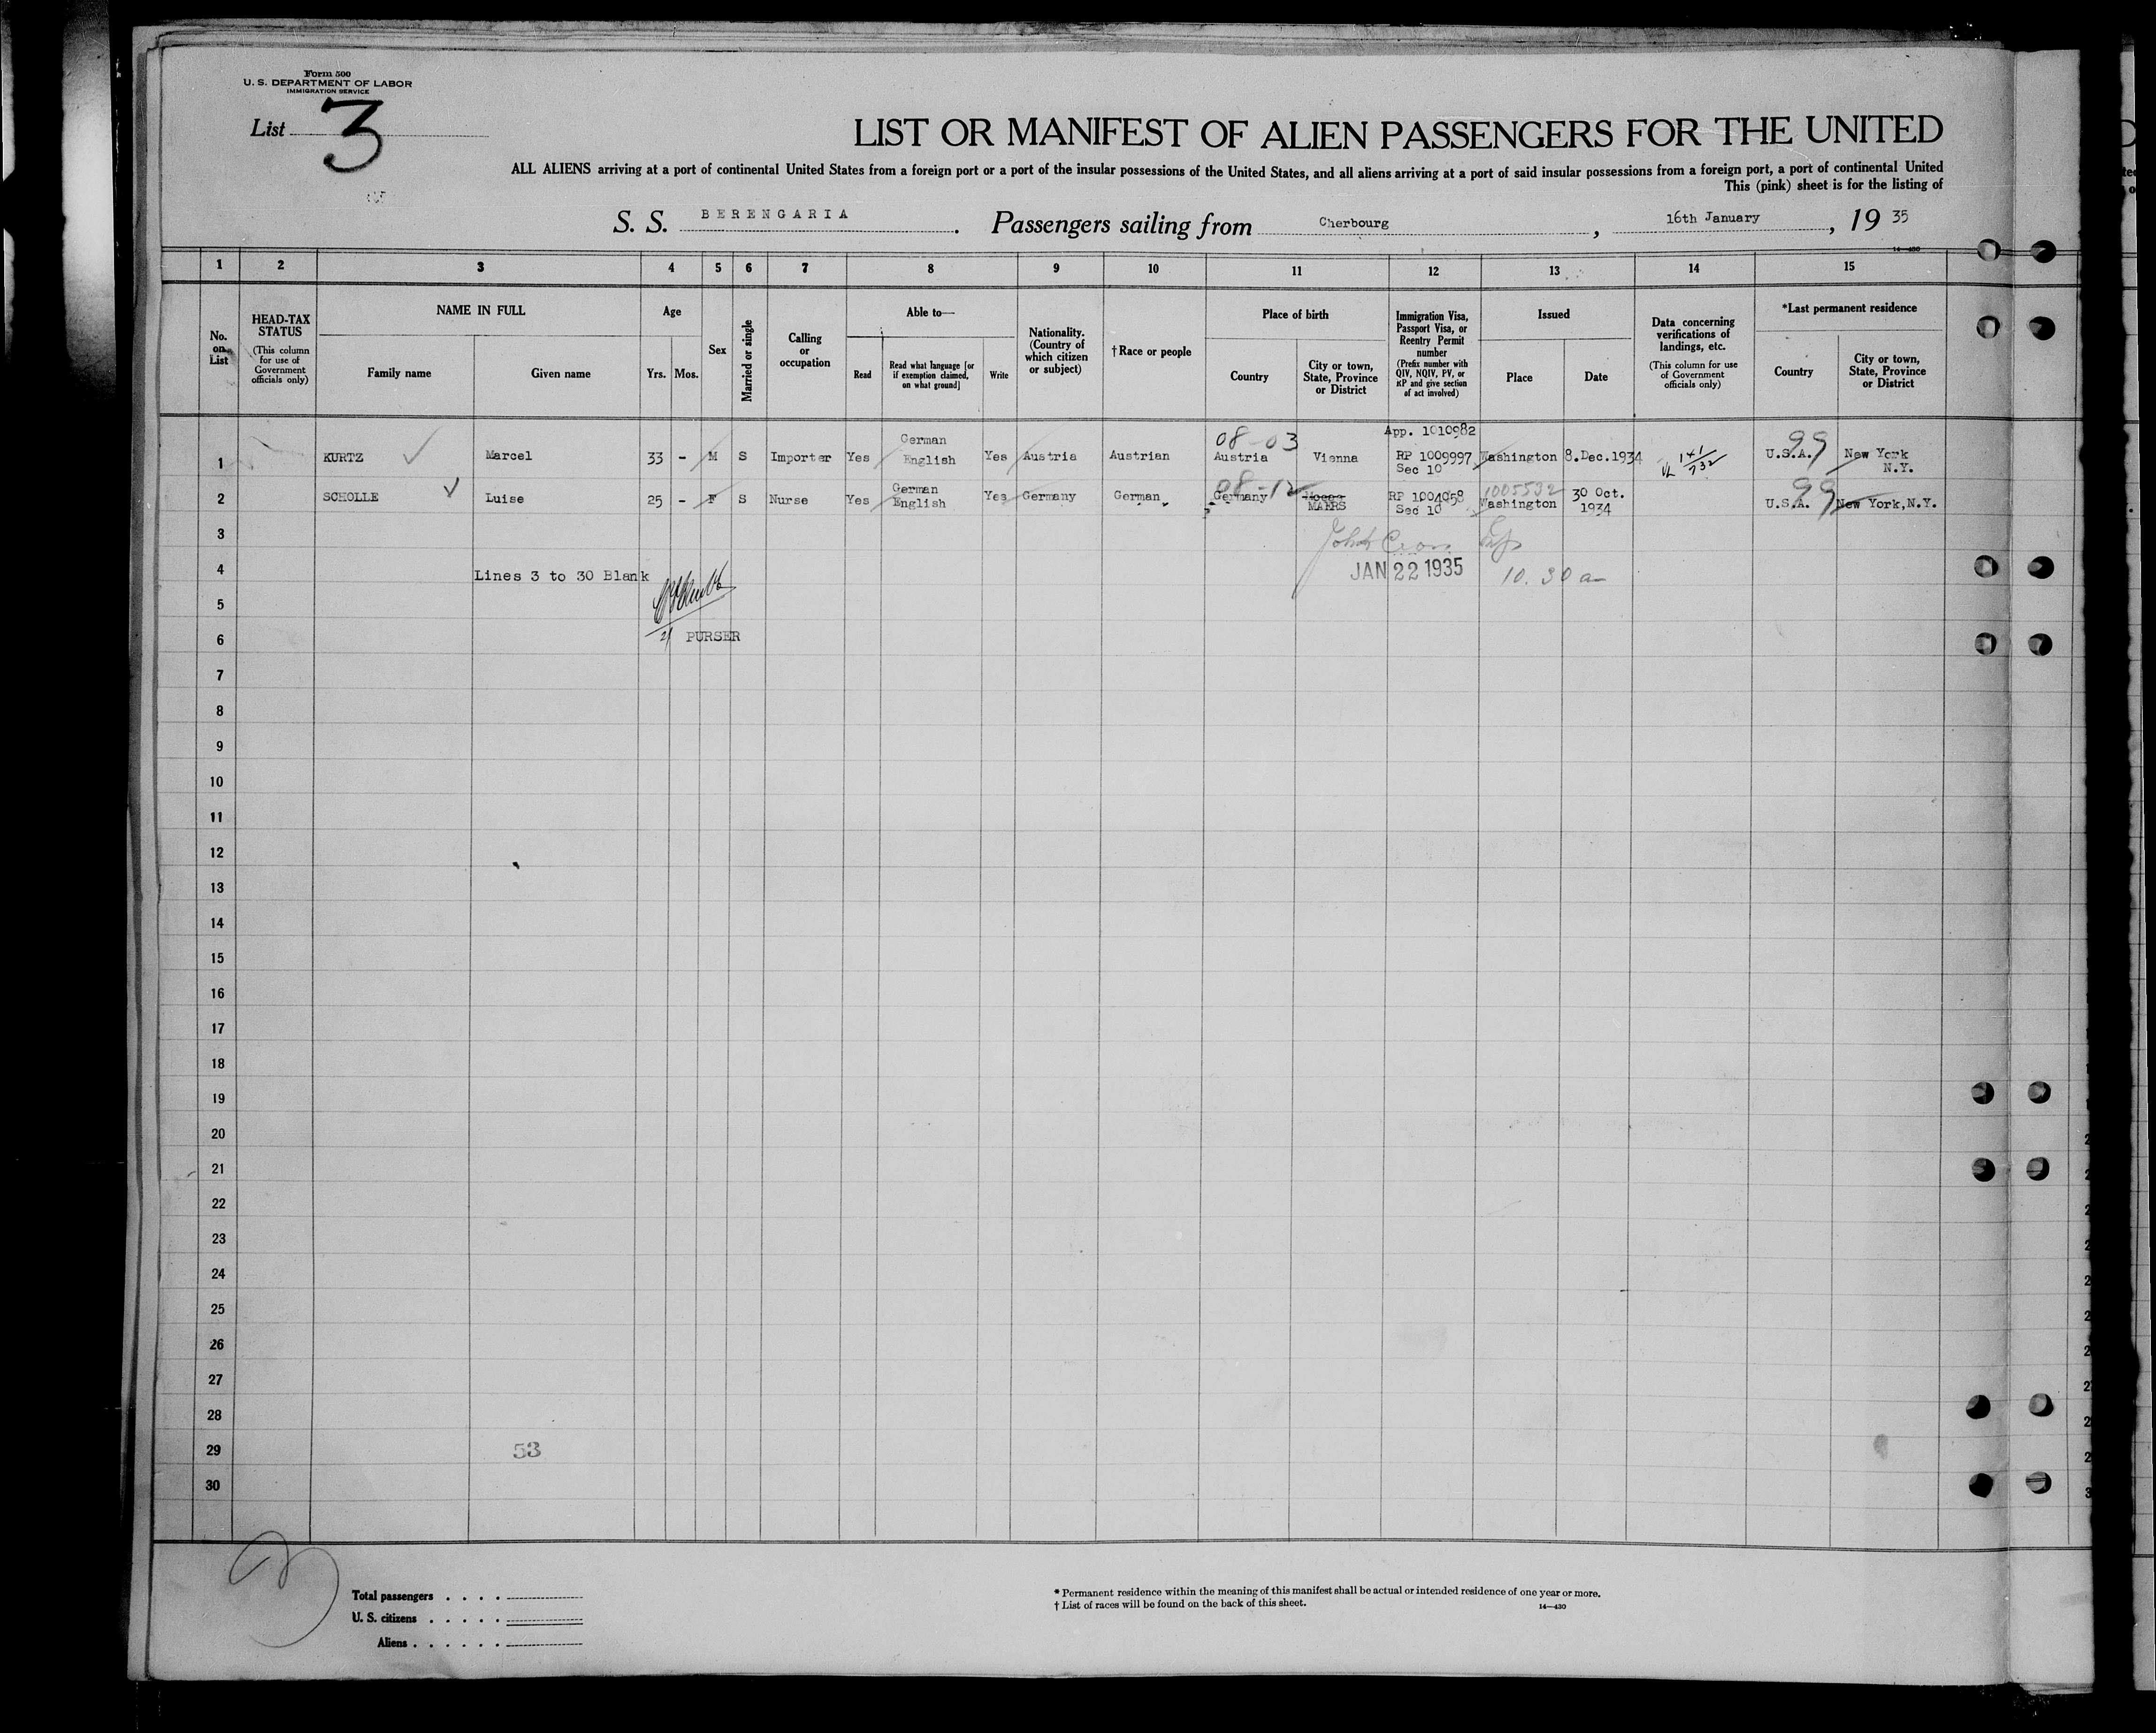 Form 500
U. S. DEPARTMENT OF LABOR
IMMIGRATION SERVICE
List 3
LIST OR MANIFEST OF ALIEN PASSENGERS FOR THE UNITED
ALL ALIENS arriving at a port of continental United States from a foreign port or a port of the insular possessions of the United States, and all aliens arriving at a port of said insular possessions from a foreign port, a port of continental United
This (pink) sheet is for the listing of
S. S. BERENGARIA. Passengers sailing from Cherbourg, 16th January, 19 35
14-430
1 2 3 4 5 6 7 8 9 10 11 12 13 14 15
No. on List
HEAD-TAX STATUS
(This column for use of Government officials only)
NAME IN FULL
Family name
Given name
Age
Yrs. Mos.
Sex
Married or single
Calling or occupation
Able to—
Read
Read what language [or if exemption claimed, on what ground]
Write
Nationality. (Country of which citizen or subject)
†Race or people
Place of birth
Country
City or town, State, Province or District
Immigration Visa, Passport Visa, or Reentry Permit number
(Prefix number with QIV, NQIV, PV, or RP and give section of act involved)
Issued
Place
Date
Data concerning verifications of landings, etc.
(This column for use of Government officials only)
*Last permanent residence
Country
City or town, State, Province or District
08-03 App. 1010982 99
1 KURTZ Marcel 33 - M S Importer Yes German English Yes Austria Austrian Austria Vienna RP 1009997 Sec 10 Washington 8.Dec.1934 U.S.A. New York N.Y.
08-12 1005532 99
2 SCHOLLE Luise 25 - F S Nurse Yes German English Yes Germany German Germany MAERS RP 1004058 Sec 10 Washington 30 Oct. 1934 U.S.A. New York,N.Y.
3
4 Lines 3 to 30 Blank JAN 22 1935 10.30 a
5
6 PURSER
7
8
9
10
11
12
13
14
15
16
17
18
19
20
21
22
23
24
25
26
27
28
29 53
30
Total passengers
U. S. citizens
Aliens
* Permanent residence within the meaning of this manifest shall be actual or intended residence of one year or more.
† List of races will be found on the back of this sheet.
14-430